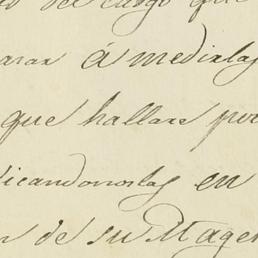 del cargo que
á medirlas
que hallare por
icandonoslas en
de su Mages